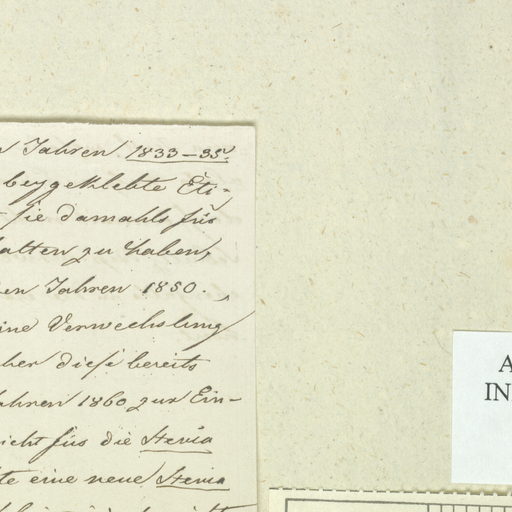 n Jahren 1833–35.
beygeklebte Eti-
sie damahls für
halten zu haben,
en Jahren 1850.
ine Verwechslung
her diese bereits
ahren 1860 zur Ein-
icht für die Stevia
te eine neue Stevia
A
IN